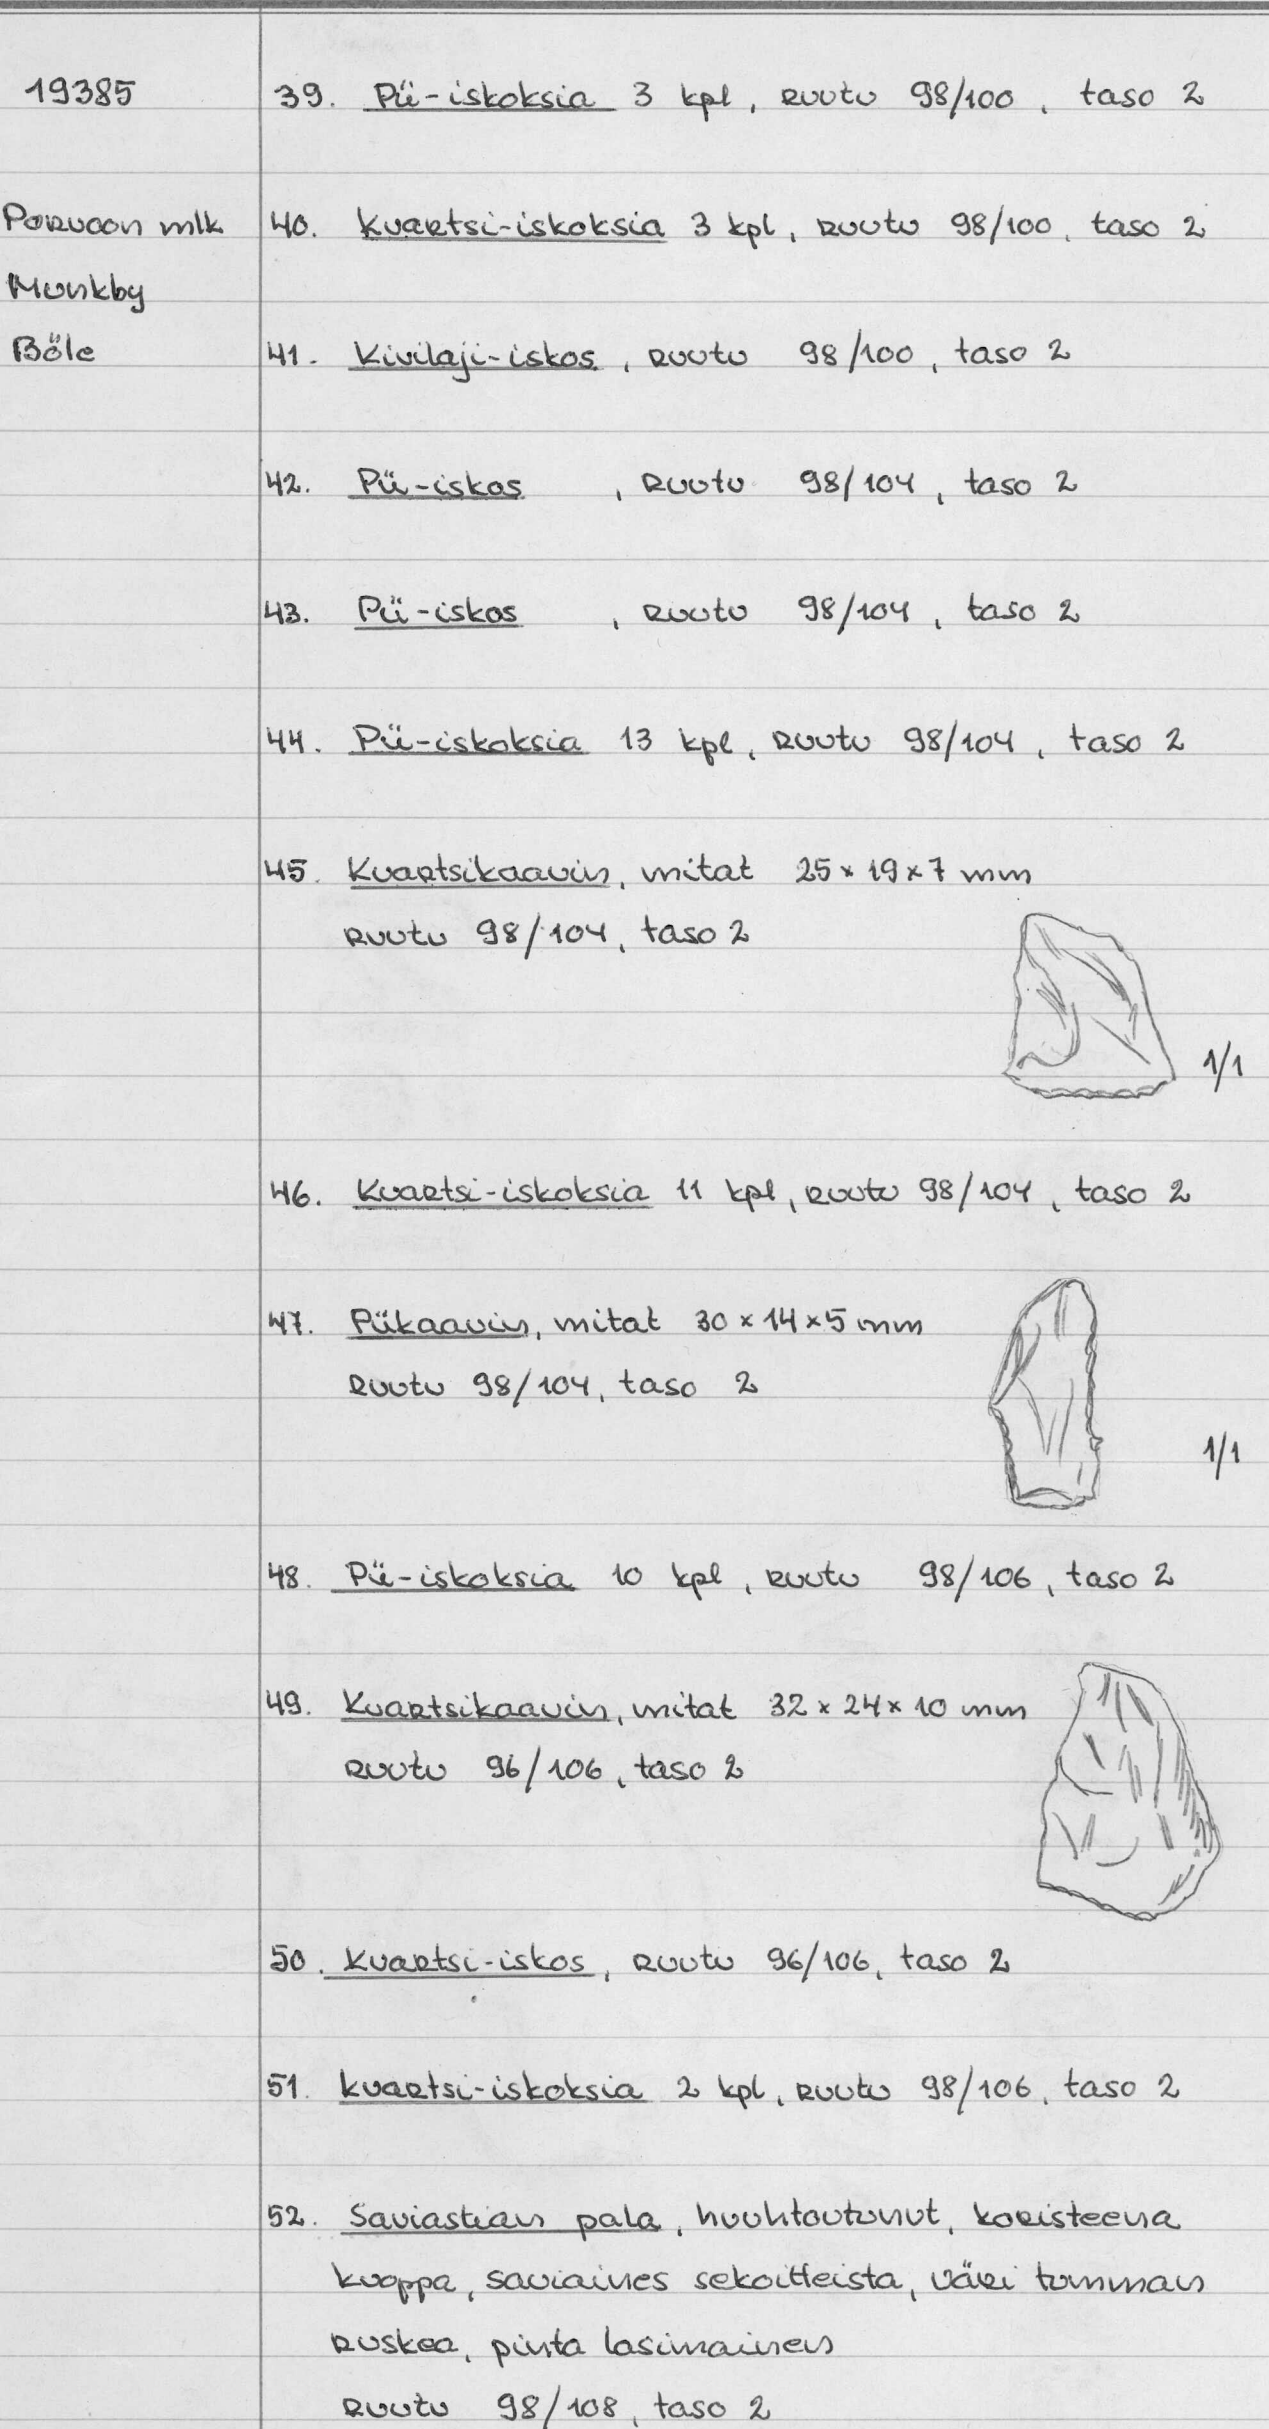 19385
39. Pii-iskoksia 3 kpl, ruutu 98/100, taso 2
Porvoon mlk
40. Kvartsi-iskoksia 3 kpl, ruutu 98/100, taso 2
Munkby
Böle
41. Kivilaji-iskos, ruutu 98/100, taso 2
42. Pii-iskos, ruutu 98/104, taso 2
43. Pii-iskos, ruutu 98/104, taso 2
44. Pii-iskoksia 13 kpl, ruutu 98/104, taso 2
45. Kvartsikaavin, mitat 25 x 19 x 7 mm
ruutu 98/104, taso 2
1/1
46. Kvartsi-iskoksia 11 kpl, ruutu 98/104, taso 2
47. Piikaavin, mitat 30 x 14 x 5 mm
ruutu 98/104, taso 2
1/1
48. Pii-iskoksia 10 kpl, ruutu 98/106, taso 2
49. Kvartsikaavin, mitat 32 x 24 x 10 mm
ruutu 96/106, taso 2
50. Kvartsi-iskos, ruutu 96/106, taso 2
51. kvartsi-iskoksia 2 kpl, ruutu 98/106, taso 2
52. Saviastian pala, huuhtoutunut, koristeena
kuoppa, saviaines sekoitteista, väri tumman
ruskea, pinta lasimainen
ruutu 98/108, taso 2